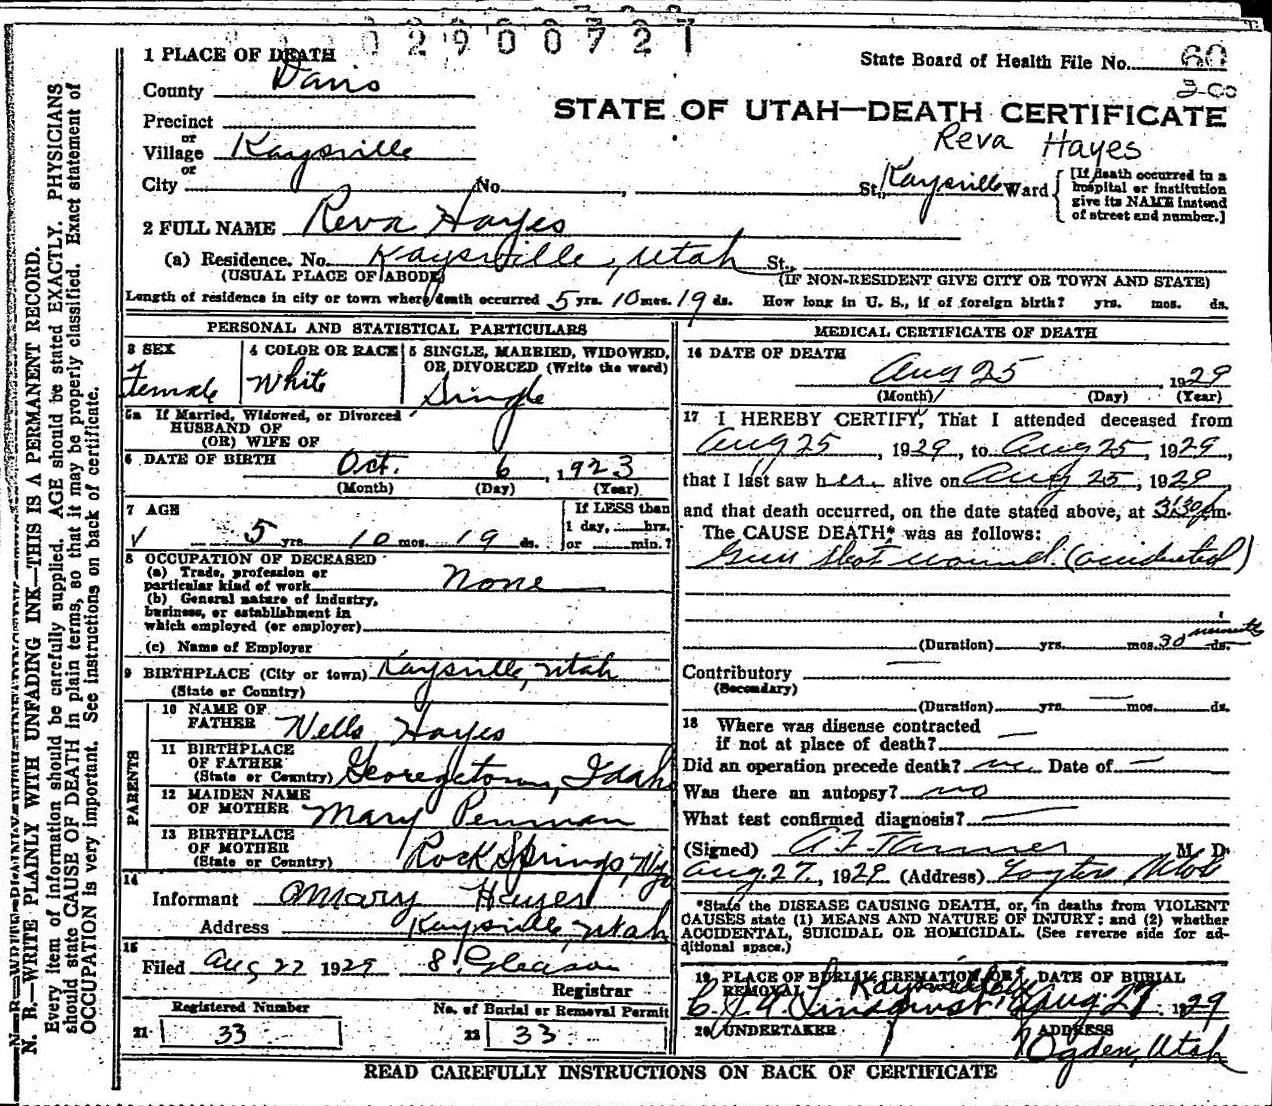 02900727
1 PLACE OF DEATH
State Board of Health File No. 60
County Davis
3-00
STATE OF UTAH—DEATH CERTIFICATE
Precinct
Reva Hayes
or
Village Kaysville
or
City No. , St. Kaysville Ward [If death occurred in a hospital or institution give its NAME instead of street and number.]
2 FULL NAME Reva Hayes
(a) Residence. No. Kaysville, Utah St.,
(USUAL PLACE OF ABODE) (IF NON-RESIDENT GIVE CITY OR TOWN AND STATE)
Length of residence in city or town where death occurred 5 yrs. 10 mos. 19 ds. How long in U. S., if of foreign birth? yrs. mos. ds.
PERSONAL AND STATISTICAL PARTICULARS
3 SEX
Female
4 COLOR OR RACE
White
5 SINGLE, MARRIED, WIDOWED, OR DIVORCED (Write the word)
Single
5a If Married, Widowed, or Divorced
HUSBAND OF
(OR) WIFE OF
6 DATE OF BIRTH Oct. 6, 1923
(Month) (Day) (Year)
7 AGE
5 yrs. 10 mos. 19 ds.
If LESS than
1 day, hrs.
or min.?
8 OCCUPATION OF DECEASED
(a) Trade, profession or
particular kind of work None
(b) General nature of industry,
business, or establishment in
which employed (or employer)
(c) Name of Employer
9 BIRTHPLACE (City or town) Kaysville, Utah
(State or Country)
PARENTS
10 NAME OF
FATHER Wells Hayes
11 BIRTHPLACE
OF FATHER
(State or Country) Georgetown, Idaho
12 MAIDEN NAME
OF MOTHER Mary Penman
13 BIRTHPLACE
OF MOTHER
(State or Country) Rock Springs, Wyo
14
Informant Mary Hayes
Address Kaysville, Utah
15
Filed Aug 27 1929 S. Gleason
Registrar
Registered Number
21 33
No. of Burial or Removal Permit
22 33
MEDICAL CERTIFICATE OF DEATH
16 DATE OF DEATH
Aug 25, 1929
(Month) (Day) (Year)
17 I HEREBY CERTIFY, That I attended deceased from
Aug 25, 1929, to Aug 25, 1929,
that I last saw her alive on Aug 25, 1929,
and that death occurred, on the date stated above, at 3:30 pm.
The CAUSE DEATH* was as follows:
Gun shot wound. (accidental)
(Duration) yrs. mos. 30 minutes ds.
Contributory
(Secondary)
(Duration) yrs. mos. ds.
18 Where was disease contracted
if not at place of death?
Did an operation precede death? no Date of
Was there an autopsy? no
What test confirmed diagnosis?
(Signed) A. Z. Tanner M. D.
Aug. 27, 1929 (Address) Layton Utah
*State the DISEASE CAUSING DEATH, or, in deaths from VIOLENT
CAUSES state (1) MEANS AND NATURE OF INJURY; and (2) whether
ACCIDENTAL, SUICIDAL OR HOMICIDAL. (See reverse side for ad-
ditional space.)
19 PLACE OF BURIAL, CREMATION OR REMOVAL DATE OF BURIAL
Kaysville Aug. 27 1929
C. J. A. Lindquist
20 UNDERTAKER ADDRESS
Ogden, Utah
READ CAREFULLY INSTRUCTIONS ON BACK OF CERTIFICATE
N. B.—WRITE PLAINLY WITH UNFADING INK—THIS IS A PERMANENT RECORD.
Every item of information should be carefully supplied. AGE should be stated EXACTLY. PHYSICIANS
should state CAUSE OF DEATH in plain terms, so that it may be properly classified. Exact statement of
OCCUPATION is very important. See instructions on back of certificate.